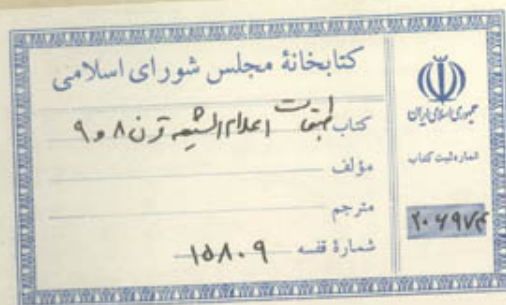 کتابخانهٔ مجلس شورای اسلامی
کتاب طبقات اعلام الشیعه قرن ۸ و ۹
مؤلف
مترجم
شمارهٔ قفسه ۱۵۸۰۹
جمهوری اسلامی ایران
شماره ثبت کتاب
۲۰۶۹۷۴